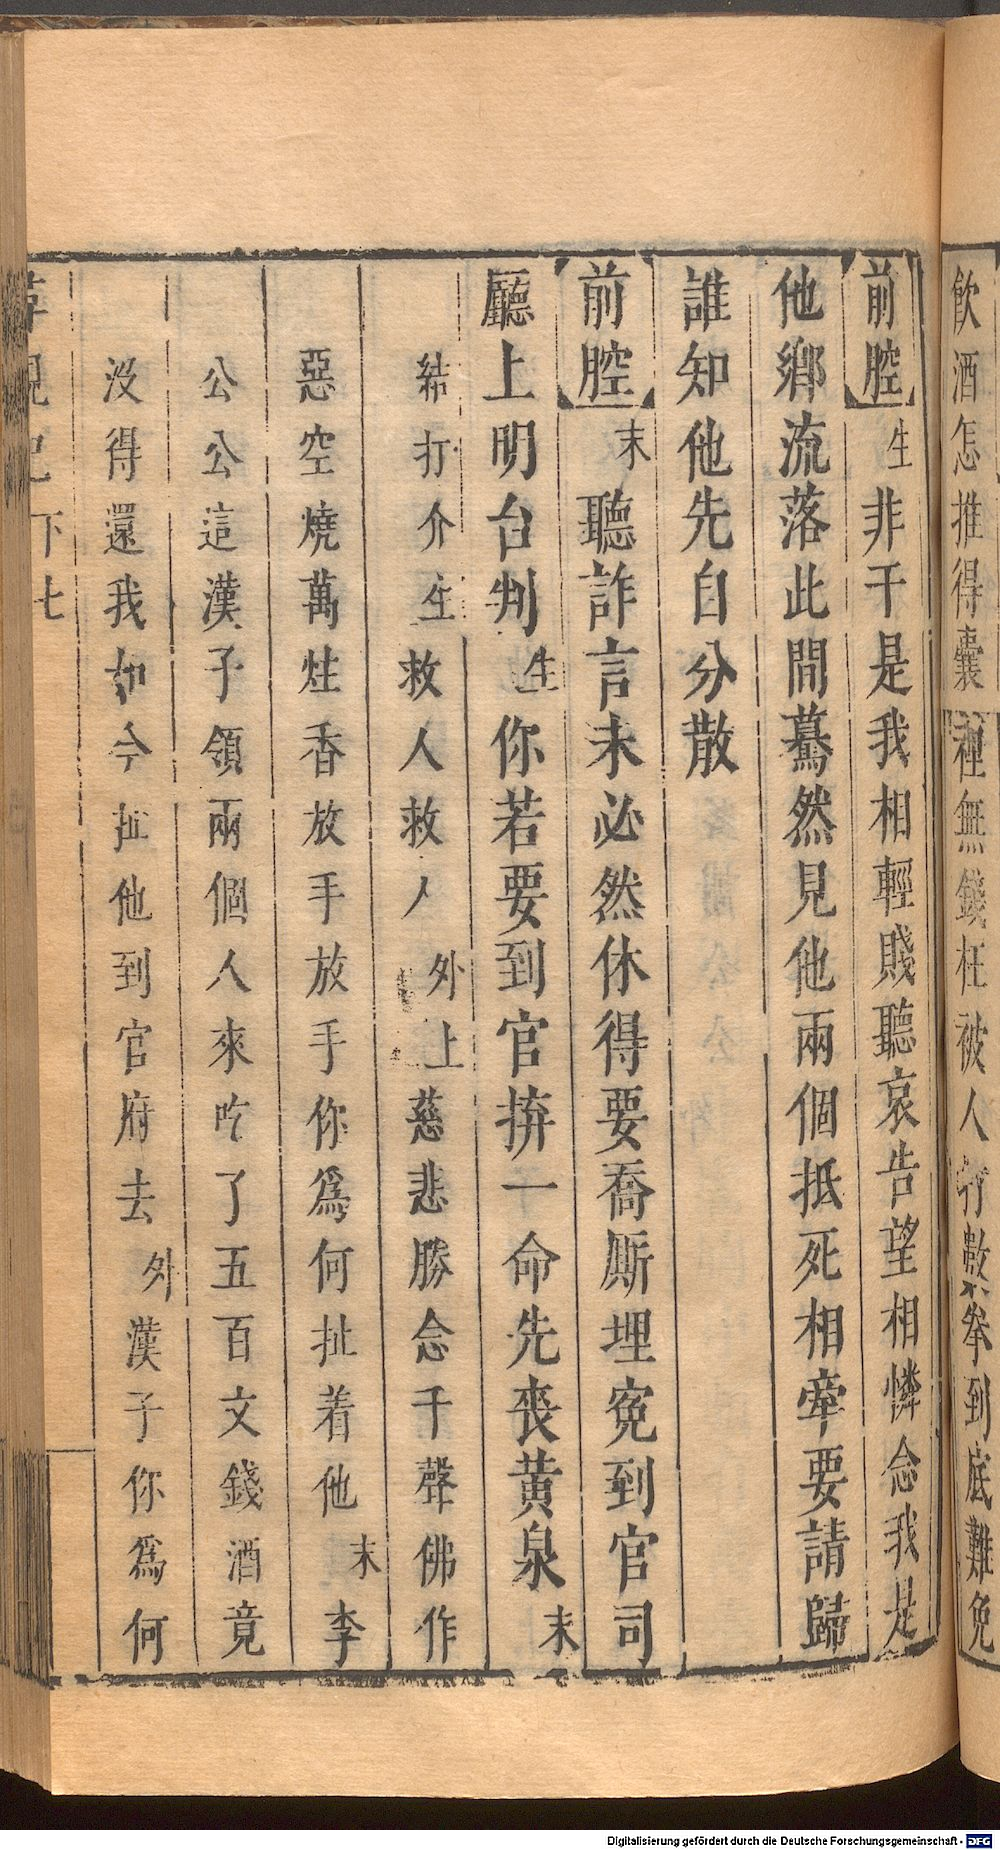 飲酒怎推得囊裡無錢枉被人行散拳到底難免
前腔生非干是我相輕賤聽哀告望相憐念我是
他鄉流落此間驀然見他兩個抵死相牽要請歸
誰知他先自分散
前腔末聽詐言未必然休得要喬厮埋寃到官司
廳上明台判生你若要到官拚一命先喪黃泉末
結打介生救人救人外上慈悲勝念千聲佛作
惡空燒萬炷香放手放手你爲何扯着他末李
公公這漢子領兩個人來吃了五百文錢酒竟
没得還我如今扯他到官府去外漢子你爲何
下 七
Digitalisierung gefördert durch die Deutsche Forschungsgemeinschaft - DFG